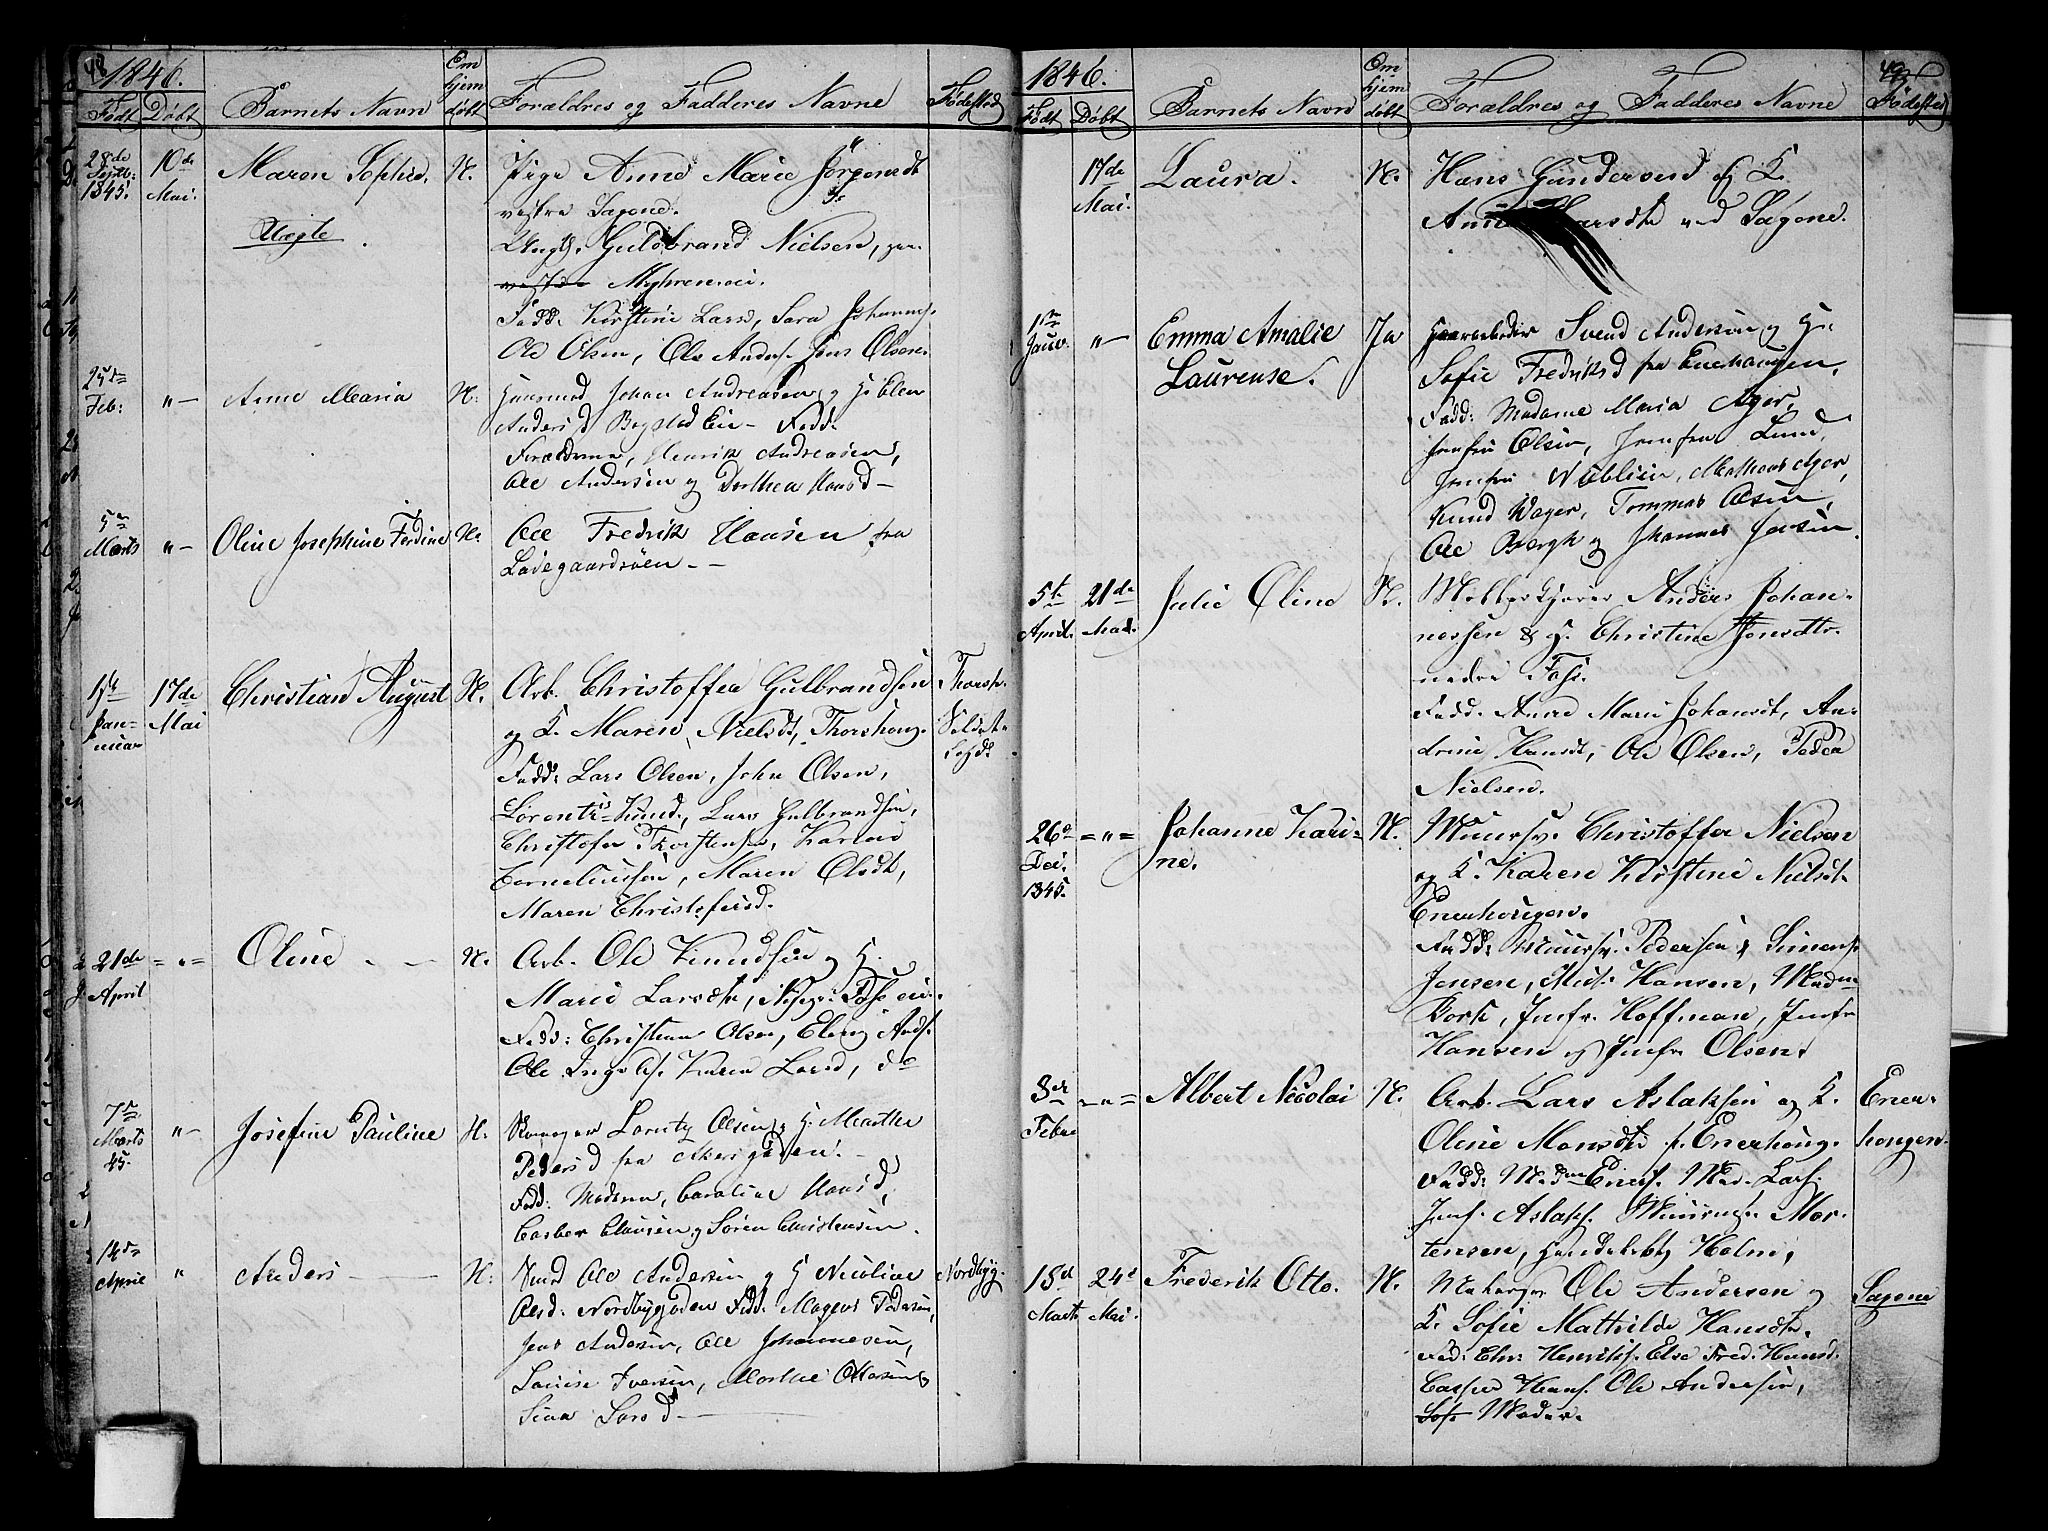 48
1846.
Født Døbt Barnets Navn Om hjem døbt Forældres og Fadderes Navne Fødested
28de Septb: 1845. 10de Mai. Maren Sophie. N. Pige Anne Marie Jörgensdt
vestre Sagene.
Uægte
Ungk. Guldbrand Nielsen,
vestre Myhrensei.
Fadd. Kirstine Larsd, Sara Johanns.
Ole Olsen, Ole Anders. Jens Olsen
25de Feb: "— Anne Maria N: Huusmd Johan Andreasen og H: Elen
Andersd Bogstad Eie — Fadd.
Forældrene, Henrik Andreasen,
Ole Andersen og Dorthea Hansd —
5te Marts "— Oline Josephine Ferdine N. Ole Fredrik Hansen fra
Ladegaardsøen — —
1ste Januar 17de Mai Christian August N. Arb. Christoffer Gulbrandsen
og K. Maren Nielsdt, Thorshoug.
Fadd: Lars Olsen, John Olsen,
Lorents Knud., Lars Gulbrandsen,
Christofer Thorstensen, Karen
Corneliussen, Maren Olsdt,
Maren Christofersd.
21de April = " = Oline — — N. Arb. Ole Knudsen og H.
Marie Larsdtr, Foss eie.
Fadd: Christian Olsen, Andr.
Ole Ingebr. Karen Larsd, do
7de Marts 45. "— Josefine Pauline N. Lorentz Olsen og H. Marthe
Pedersd fra Akersgaden. —
Fadd: Moderen, Caroline Hansd,
Casber Clausen og Søren Christensen.
14de April " Anders — N: Svend Ole Andersen og H Nicoline Nordbyg.
Olsd: Nordbygaden Fadd. Mogens Pedersen,
Jens Andersen, Ole Johannesen,
Louise Iversen, Marthe Ottersen,
Sina Larsd —
1846. 49
Født Døbt Barnets Navn Om hjem døbt Forældres og Fadderes Navne Fødested
17de Mai. Laura. N. Hans Gundersen og K.
Anne Larsdtr ved Sagene.
1ste Janv. "— Emma Amalie Ja Svend Andersen og H:
Laurense. Sofie Fredriksd fra Enerhaugen,
Fadd: Madame Maria Ager,
Jomfru Olsen, Jomfru Lund,
Jomfru Nøblien, Mathias Ager,
Knud Wager, Tommas Olsen,
Ole Bergh og Johannes Jensen.
5te April. 21de Mai. Julie Oline N. Møllerkjører Anders Johan-
nessen & H. Christine Jensdtr.
nedre Foss.
Fadd. Anne Marie Johansdt, An-
drine Hansdt, Ole Olsen, Peder
Nielsen.
26de Dec. 1845. = " = Johanne Kari- N. Muursv. Christoffer Nielsen
ne. og K. Karen Kirstine Nielsdt.
Enerhougen.
Fadd: Muursv. Pedersen & Simens.
Jensen, Mad. Hansen, Madm
Bork, Jmfr. Hoffman, Jmfr
Hansen og Jmfr Olsen.
3de Febr = " = Albert Nicolai N. Arb. Lars Aslaksen og K. Ener-
Oline Monsdtr f. Enerhoug. hougen.
Fadd: Madme Eners. Mad. Lars.
Jmf. Aslaks. Muursv. Mor-
tensen, Handelsbtj Holm,
15de Marts 24de Mai. Frederik Otto. N. Ole Andersen og Sagene
K. Sofie Mathilde Hansdtr.
Fad: Chr. Henriks. Else Fred. Hansd.
Casper Hans. Ole Andersen,
Moder.